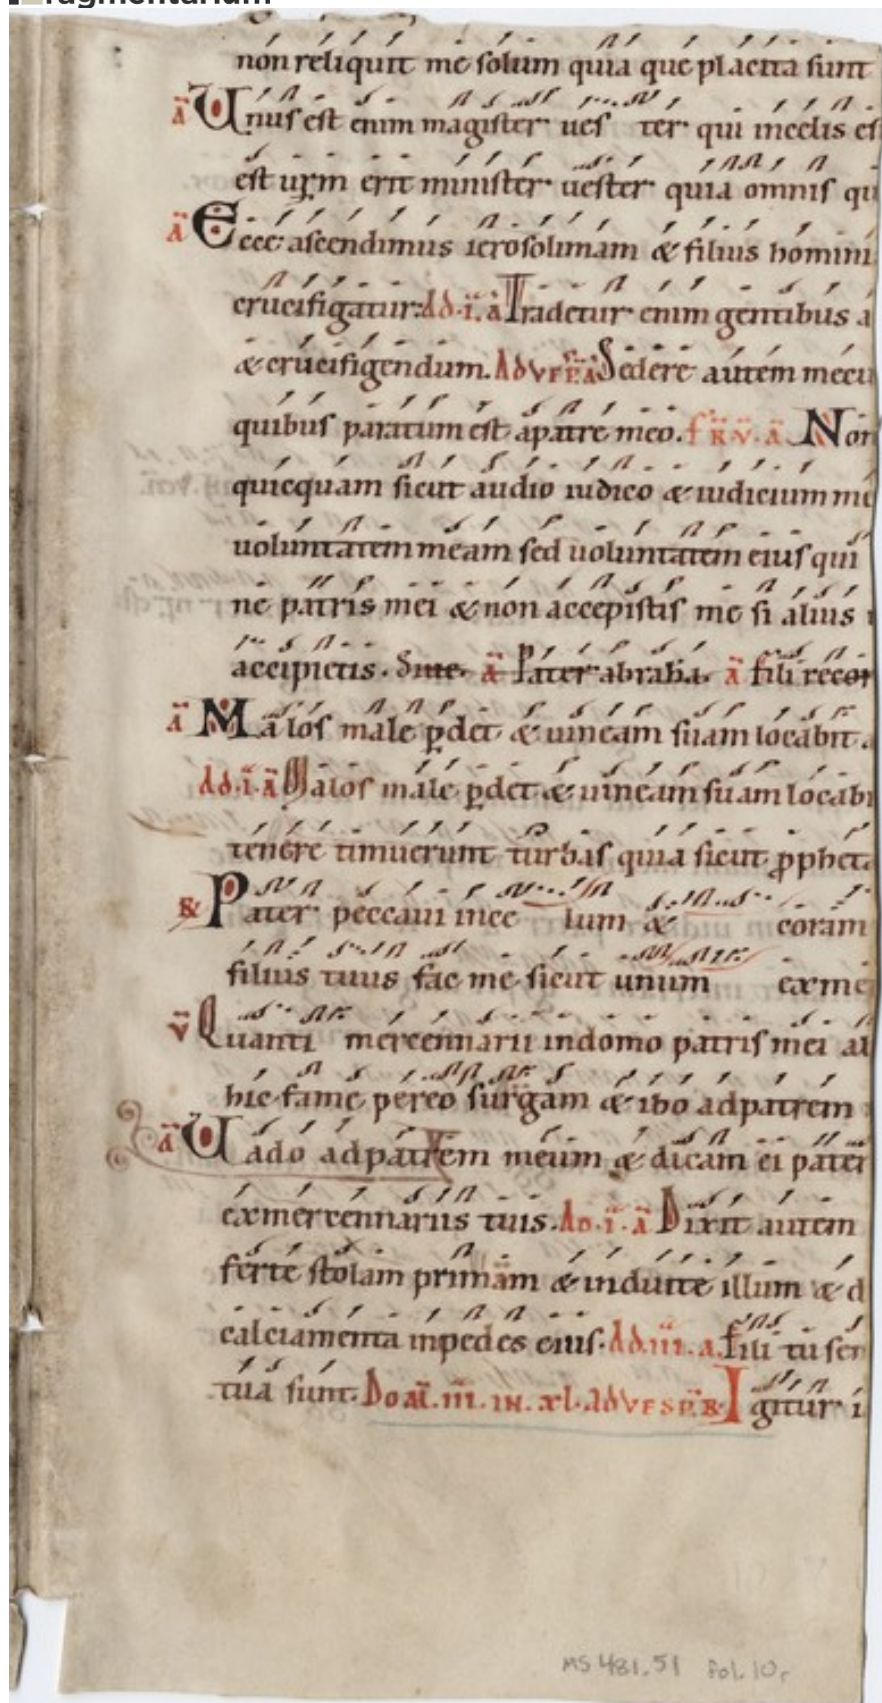 ragmentarium
non reliquit me solum quia que placita sunt
ā Unus est enim magister ues ter qui incelis est
est urm̄ erit minister uester quia omnis qui
ā Ecce ascendimus ierosolimam & filius homini
crucifigatur. Ad .i. ā Tradetur enim gentibus a
& crucifigendum. Ad VESP. ā Sedere autem mecu
quibus paratum est apatre meo. f R V. ā Non
quicquam sicut audio iudico & iudicium me
uoluntatem meam sed uoluntatem eius qui
ne patris mei & non accepistis me si alius
accipietis. ā Pater abraha. ā fili recor
ā Malos male ꝑdet & uineam suam locabit a
Ad .i. ā Malos male ꝑdet & uineam suam locabi
tenere timuerunt turbas quia sicut ꝓpheta
R Pater peccaui incelum & coram
filius tuus fac me sicut unum ex me
V Quanti mercennarii indomo patris mei ab
hic fame pereo surgam & ibo adpatrem
ā Uado adpatrem meum & dicam ei pater
ex mercennariis tuis. Ad .i. ā Dixit autem
ferte stolam primam & induite illum & d
calciamenta inpedes eius. Ad .iii. a. fili tu sem
tua sunt. Do AL. III. IN. XL. Ad VESP. R Igitur i
MS 481.51 fol. 10r